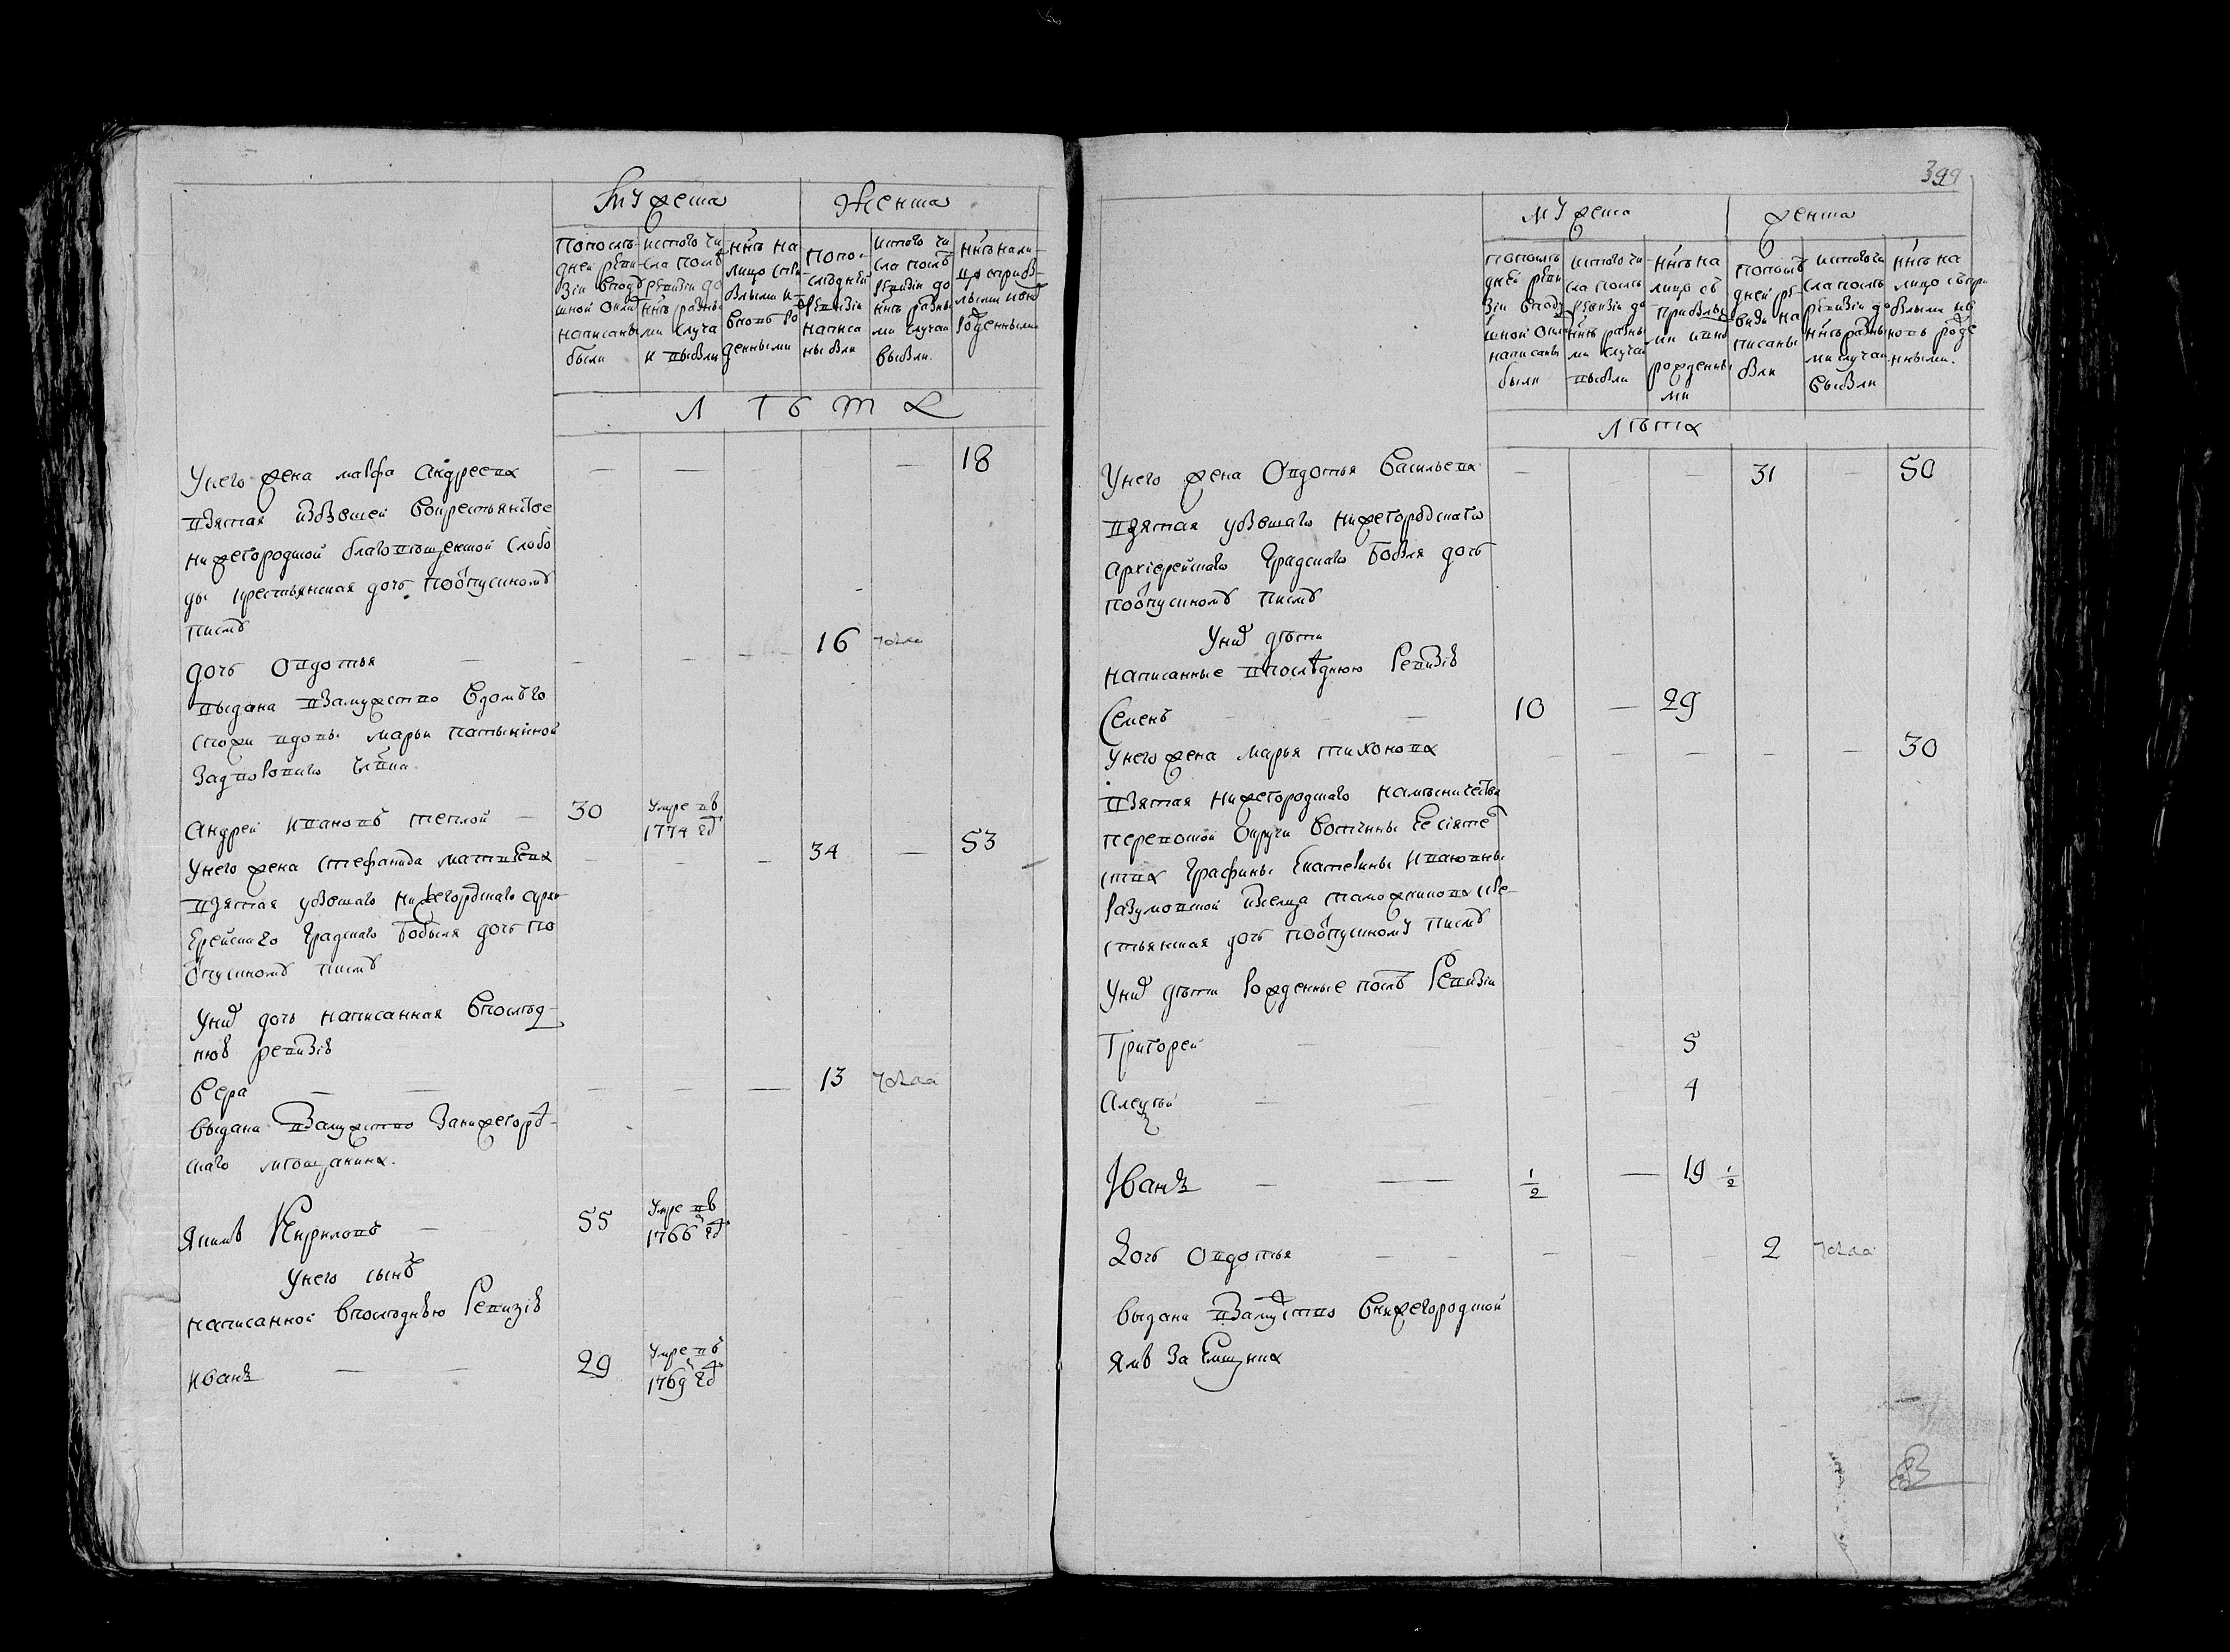 мужеска
женска
попослѣ-
дней реви-
зіи вподу
шной окла
написаны
были
истого чи
сла послѣ
ревизіи до
ннѣ разны
ми случа
и выбли
ннѣ на
лицо спри
былыми и
вновь ро
денными
попо-
слѣдней
ревизіи
написа
ны были
истого чи
сла послѣ
ревизіи до
ннѣ разны
ми случаи
выбли
ннѣ нали-
цо сприб-
лыми
роденными
Л Ѣ т а
Унего жена марфа андреева
18
взятая избвшей вокрестьянстве
нижегородкой благовѣщенской слобо
ды крестьянская дочь поотпускному
писму
дочь овдотья
16
выдана взамужство вдомъ
вдовы марьи
Андрей ивановъ теплой
30
умре въ
1774 гд
Унего жена стефанида матвѣева
34
53
взятая убвшаго нижегородскаго архи
ерейскаго градскаго бобыля дочь по
отпускному писму
Унихъ дочь написанная впослѣд-
нюю ревизію
вера
13
выдана взамужство занижегород-
скаго мѣщанина.
Якимъ Кириловъ
55
умре въ
1766 гд
Унего сынъ
написанной впослѣднюю ревизію
иванъ
29
умре въ
1769 гд
399
мужеска
женска
попослѣ
дней реви
зіи вподу
шной окла
написаны
были
истого чи-
сла послѣ
ревизіи до
ннѣ разны
ми случаи
выбли
ннѣ на
лицо съ
прибылы
ми ивно
рожденны
ми
попослѣ
дней ре-
визи на
писаны
были
истого чи
сла послѣ
ревизіи до
ннѣ разны
ми случаи
выбли
ннѣ на
лицо съпри
былыми ив
новь роде
нными.
Лѣта
Унего жена Овдотья Васильева
31
50
взятая убвшаго нижегородскаго
архіерейскаго градскаго бобля дочь
поотпускному писму
Унихъ дѣти
написанные впослѣднюю ревизію
Семенъ
10
29
Унего жена марья тихонова
30
взятая нижегородскаго намѣстничества
перевоской округи вотчины ее сіятел
ства графины екатерины ивановны
разумовской изселца кре-
стьянская дочь поотпускному писму
Унихъ дѣти рожденные послѣ ревизіи
Григорей
5
алексѣй
4
Иванъ
1/2
19 1/2
Дочь овдотья
2
выдана взамужство внижегородкой
ямъ за ямщика